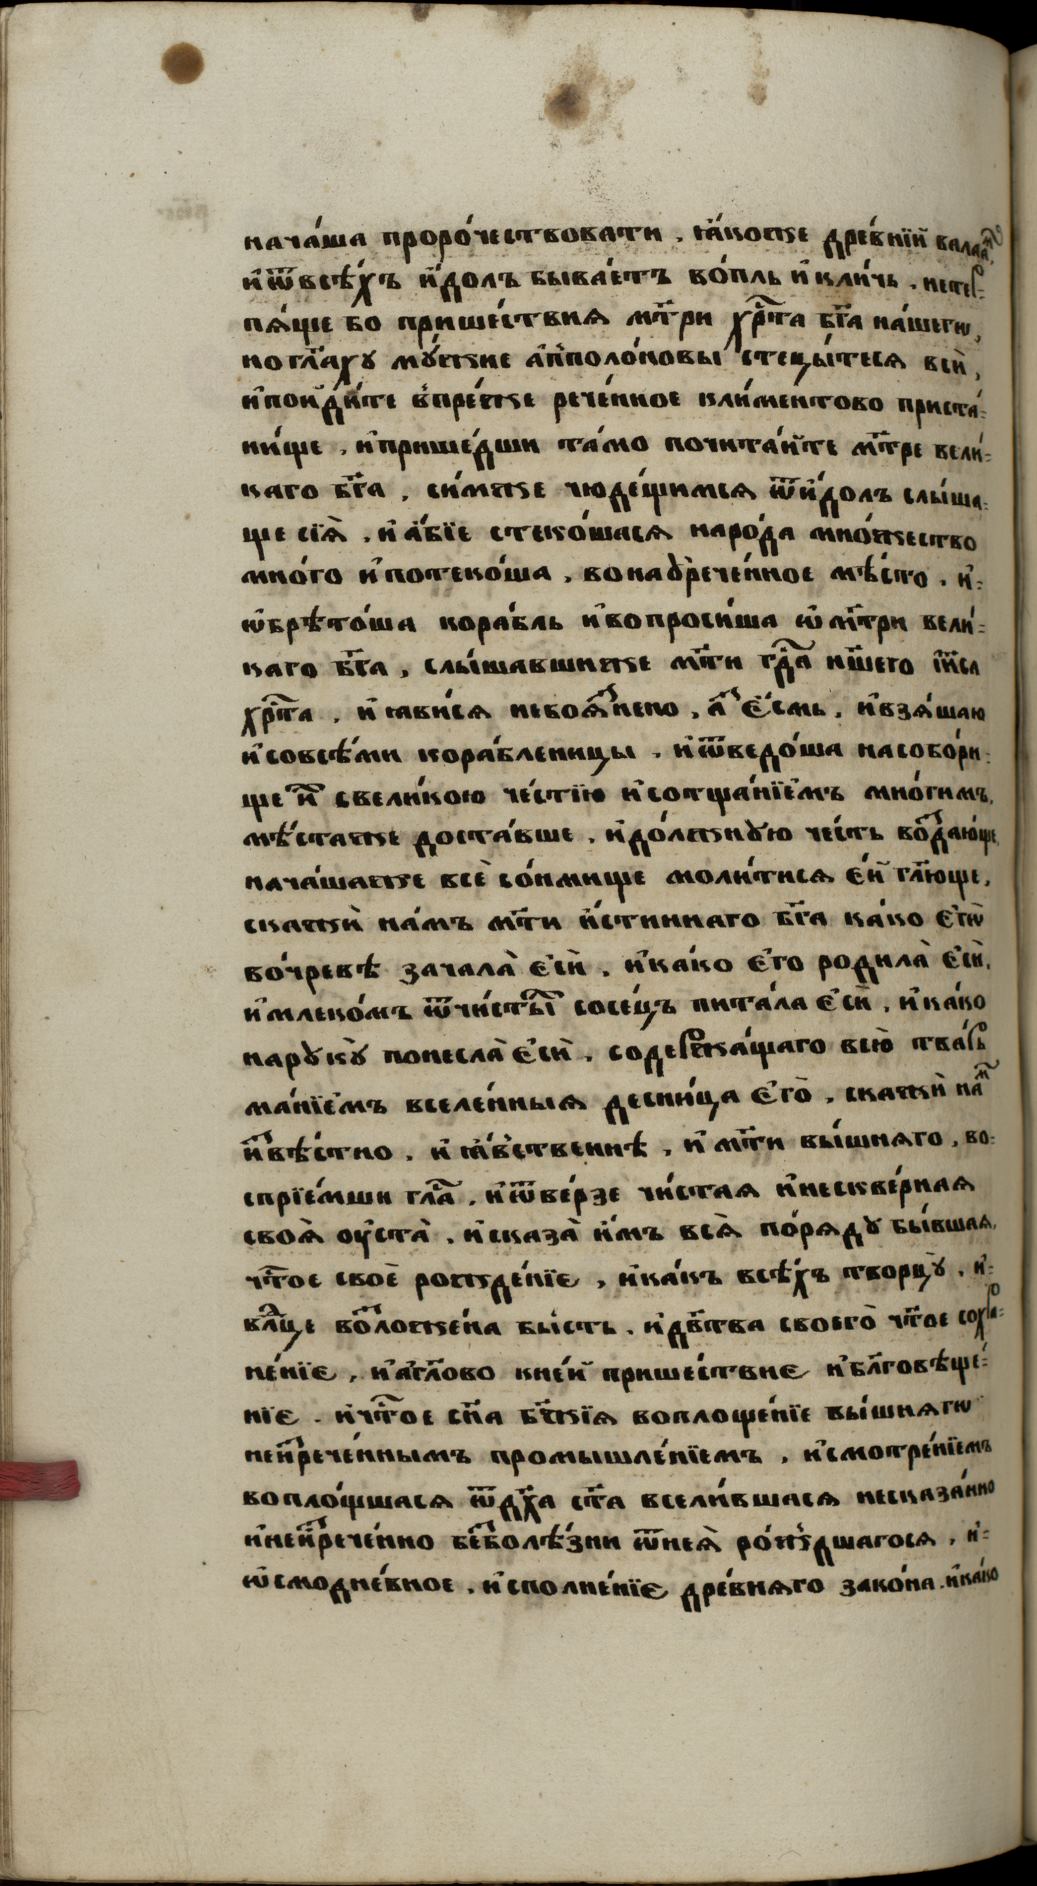 нача́ша проро́чествовати . ꙗ҆́коже дре́внїй валаа́мъ,
и҆ѿвсѣ́хъ и҆́долъ быва́етъ во́пль и҆кли́чь . нетер-
пѧ́ще бо прише́ствиѧ мт҃ри хрⷭ҇та бг҃а на́шегѡ,
но гл҃аху мꙋ́жие а҆пполо́новы стецы́тесѧ вси̑,
и҆пои҆ди́те в̾пре́жⷣе рече́нное кли́ментово приста́-
нище . и҆прише́дши та́мо почита́йте мт҃ре вели́-
каго бг҃а , си́мже чюде́щимсѧ ѿи҆́долъ слы́ша-
ще сїѧ̀ . и҆а҆́бїе стеко́шасѧ наро́да мно́жество
мно́го и҆потеко́ша , вонаꙋ̾рече́нное мѣ́сто . и҆-
ѡ҆брѣто́ша кора́бль и҆вопроси́ша ѡ҆мт҃ри вели́-
каго бг҃а , слы́шавшиже мт҃и гдⷭ҇а нш҃его і҆и҃са
хрⷭ҇та . и҆ꙗ҆ви́сѧ небоѧ́зⷥнено , а҆́зⷥ є҆́смь . и҆взѧ́шаю
и҆совсѣ́ми кора́бленицы . и҆ѿведо́ша насобо́ри-
ще и҆́хⷯ свели́кою че́стїю и҆сотща́нїемъ мно́гимъ,
мѣ́стаже доста́вше . и҆до́лжнꙋю че́сть возⷥдаю́ще,
нача́шаже всѐ со́нмище моли́тисѧ є҆́й гл҃юще,
скажѝ на́мъ мт҃и и҆́стиннаго бг҃а ка́ко є҆гѡ̀
во́чревѣ зачала̀ є҆сѝ . и҆ка́ко є҆го родила̀ є҆сѝ,
и҆млеко́мъ ѿчи́стыⷯ сосе́цъ пита́ла є҆сѝ . и҆ка́ко
нарꙋкꙋ̀ понесла̀ є҆сѝ , содержа́щаго всю̀ тва́рь
ма́нїемъ вселе́нныѧ десни́ца є҆го̀ . скажѝ на́мⷨ
и҆звѣ́стно . и҆ ꙗ҆́вственнѣ , и҆ мт҃и вы́шнѧго , во-
спрїе́мши гл҃а . и҆ѿве́рзе чи́стаѧ и҆нескве́рнаѧ
своѧ̀ оу҆ста̀ . и҆сказа̀ и҆́мъ всѧ̀ по́рѧдꙋ бы́вшаѧ,
чтⷭ҇ое своѐ рожде́нїе , и҆ка́къ всѣ́хъ творцꙋ̀ . и҆-
влⷣце возⷥложе́на бы́сть . и҆дв҃ства своего̀ чтⷭ҇ое сохра-
не́нїе , и҆а҆́гг҃лово кне́й прише́ствие и҆бл҃говѣще́-
нїе . и҆чтⷭ҇ое сн҃а бж҃їѧ воплоще́нїе вы́шнѧгѡ
неи҆зⷥрече́ннымъ промышле́нїемъ , и҆смотре́нїемъ
вопло́щшасѧ ѿдх҃а ст҃а всели́вшасѧ несказа́нно
и҆неи҆зⷥрече́нно безⷥболѣ́зни ѿнеѧ̀ ро́ждшагосѧ . и҆-
ѡ҆смодне́вное . и҆сполне́нїе дре́внѧго зако́на . и҆ка́ко